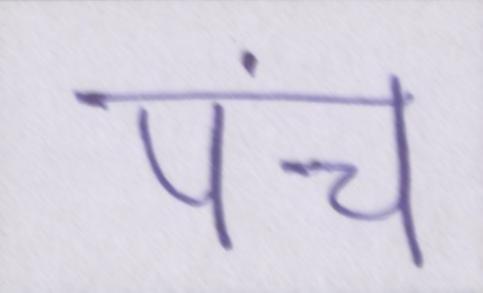 पंच